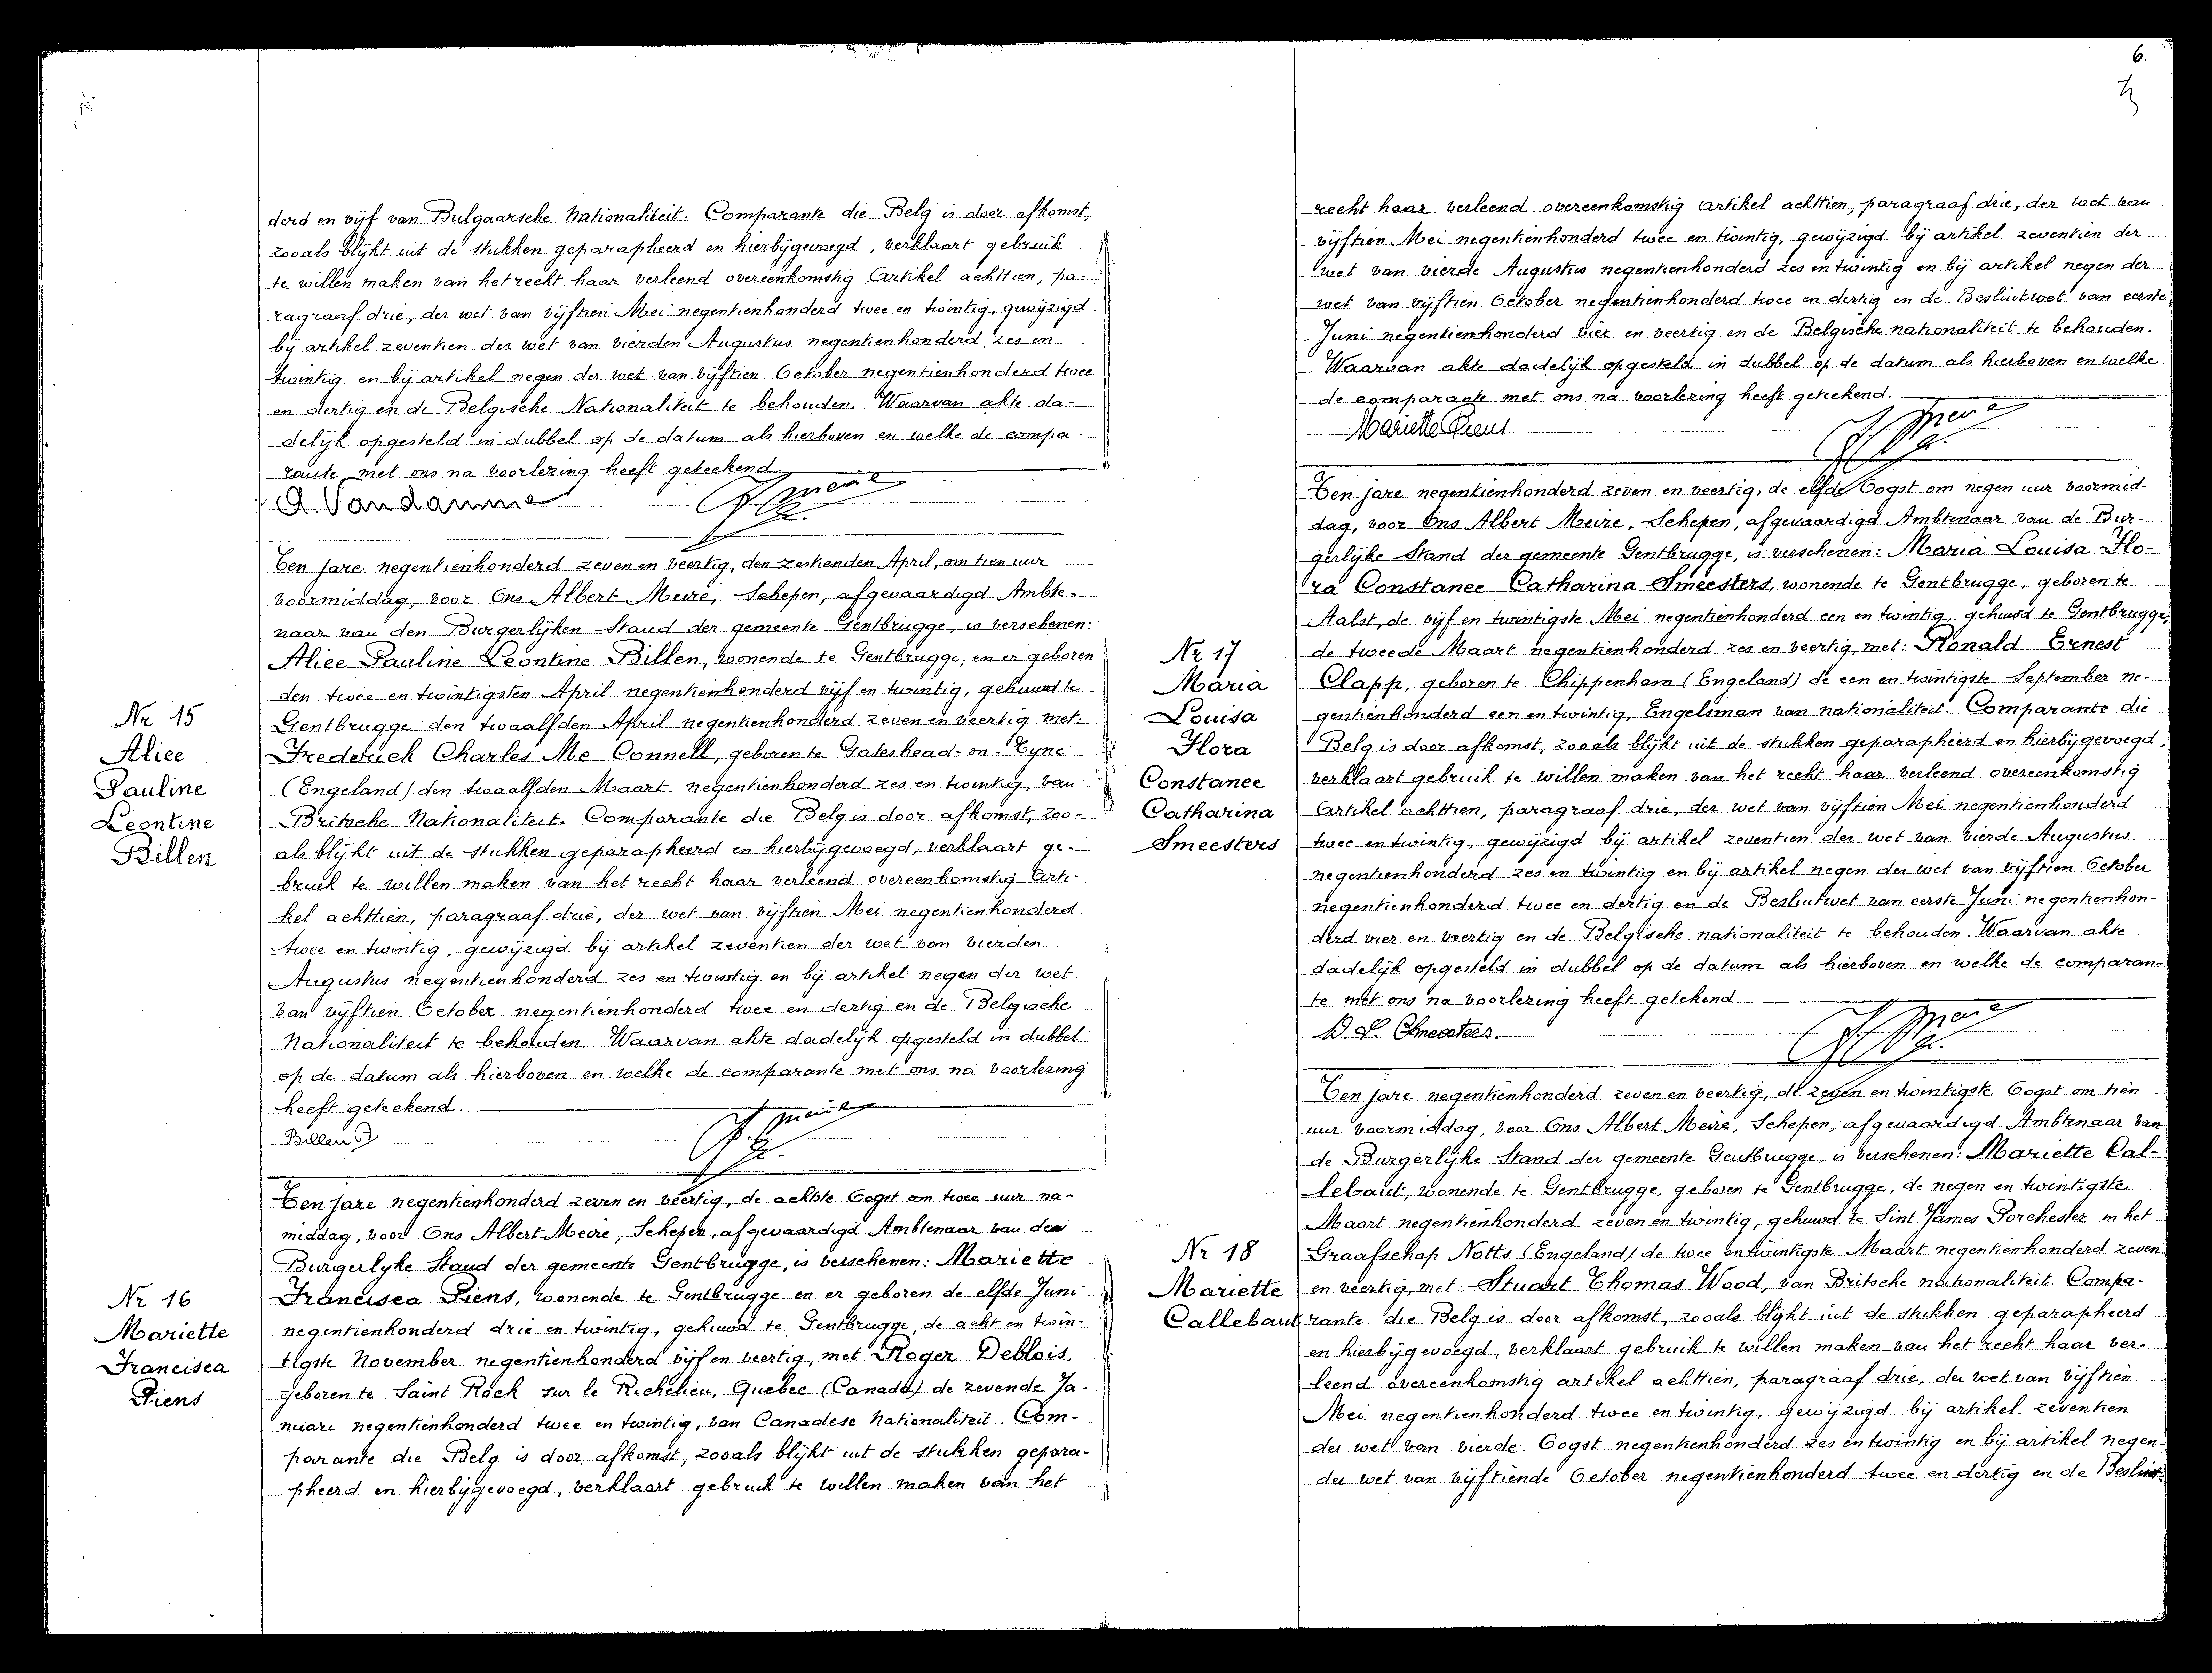 derd en vijf van Bulgaarsche Nationaliteit. Comparante die Belg is door afkomst,
zooals blijkt uit de stukken geparapheerd en hierbijgevoegd, verklaart gebruik
te willen maken van het recht haar verleend overeenkomstig Artikel achttien, pa-
ragraaf drie, der wet van vijftien Mei negentienhonderd twee en twintig, gewijzigd
bij artikel zeventien der wet van vierden Augustus negentienhonderd zes en
twintig en bij artikel negen der wet van vijftien October negentienhonderd twee
en dertig en de Belgische Nationaliteit te behouden. Waarvan akte da-
delijk opgesteld in dubbel op de datum als hierboven en welke de compa-
rante met ons na voorlezing heeft geteekend
A. Vandamme
Ten jare negentienhonderd zeven en veertig, den zestienden April, om tien uur
voormiddag, voor Ons Albert Meire, Schepen, afgevaardigd Ambte-
naar van den Burgerlijken Stand der gemeente Gentbrugge, is verschenen:
Alice Pauline Leontine Billen, wonende te Gentbrugge, en er geboren
den twee en twintigsten April negentienhonderd vijf en twintig, gehuwd te
Nr 15
Alice
Pauline
Leontine
Billen
Gentbrugge den twaalfden April negentienhonderd zeven en veertig met:
Frederick Charles Mc Connell, geboren te Gateshead-on-Tyne
(Engeland) den twaalfden Maart negentienhonderd zes en twintig, van
Britsche Nationaliteit. Comparante die Belg is door afkomst, zoo-
als blijkt uit de stukken geparapheerd en hierbijgevoegd, verklaart ge-
bruik te willen maken van het recht haar verleend overeenkomstig Arti-
kel achttien, paragraaf drie, der wet van vijftien Mei negentienhonderd
twee en twintig, gewijzigd bij artikel zeventien der wet van vierden
Augustus negentienhonderd zes en twintig en bij artikel negen der wet
van vijftien October negentienhonderd twee en dertig en de Belgische
Nationaliteit te behouden. Waarvan akte dadelijk opgesteld in dubbel
op de datum als hierboven en welke de comparante met ons na voorlezing
heeft geteekend.
Billen
Ten jare negentienhonderd zeven en veertig, de achtste Oogst om twee uur na-
middag, voor Ons Albert Meire, Schepen, afgevaardigd Ambtenaar van den
Burgerlyke Stand der gemeente Gentbrugge, is verschenen: Mariette
Nr 16
Mariette
Francisca
Piens
Francisca Piens, wonende te Gentbrugge en er geboren de elfde Juni
negentienhonderd drie en twintig, gehuwd te Gentbrugge, de acht en twin-
tigste November negentienhonderd vijf en veertig, met Roger Deblois,
geboren te Saint Rock sur le Richelieu, Quebec (Canada) de zevende Ja-
nuari negentienhonderd twee en twintig, van Canadese Nationaliteit. Com-
parante die Belg is door afkomst, zooals blijkt uit de stukken gepara-
pheerd en hierbijgevoegd, verklaart gebruik te willen maken van het
6.
recht haar verleend overeenkomstig artikel achttien, paragraaf drie, der wet van
vijftien Mei negentienhonderd twee en twintig, gewijzigd bij artikel zeventien der
wet van vierde Augustus negentienhonderd zes en twintig en bij artikel negen der
wet van vijftien October negentienhonderd twee en dertig en de Besluitwet van eerste
Juni negentienhonderd vier en veertig en de Belgische nationaliteit te behouden.
Waarvan akte dadelijk opgesteld in dubbel op de datum als hierboven en welke
de comparante met ons na voorlezing heeft getekend.
Mariette Piens
Ten jare negentienhonderd zeven en veertig, de elfde Oogst om negen uur voormid-
dag, voor Ons Albert Meire, Schepen, afgevaardigd Ambtenaar van de Bur-
gerlijke Stand der gemeente Gentbrugge, is verschenen: Maria Louisa Flo-
ra Constance Catharina Smeesters, wonende te Gentbrugge, geboren te
Aalst, de vijf en twintigste Mei negentienhonderd een en twintig, gehuwd te Gentbrugge,
Nr 17
Maria
Louisa
Flora
Constance
Catharina
Smeesters
de tweede Maart negentienhonderd zes en veertig, met: Ronald Ernest
Clapp, geboren te Chippenham (Engeland) de een en twintigste September ne-
gentienhonderd een en twintig, Engelsman van nationaliteit. Comparante die
Belg is door afkomst, zooals blijkt uit de stukken geparapheerd en hierbijgevoegd,
verklaart gebruik te willen maken van het recht haar verleend overeenkomstig
Artikel achttien, paragraaf drie, der wet van vijftien Mei negentienhonderd
twee en twintig, gewijzigd bij artikel zeventien der wet van vierde Augustus
negentienhonderd zes en twintig en bij artikel negen der wet van vijftien October
negentienhonderd twee en dertig en de Besluitwet van eerste Juni negentienhon-
derd vier en veertig en de Belgische nationaliteit te behouden. Waarvan akte
dadelijk opgesteld in dubbel op de datum als hierboven en welke de comparan-
te met ons na voorlezing heeft getekend
Smeesters.
Ten jare negentienhonderd zeven en veertig, de zeven en twintigste Oogst om tien
uur voormiddag, voor Ons Albert Meire, Schepen, afgevaardigd Ambtenaar van
de Burgerlyke Stand der gemeente Gentbrugge, is verschenen: Mariette Cal-
lebaut, wonende te Gentbrugge, geboren te Gentbrugge, de negen en twintigste
Maart negentienhonderd zeven en twintig, gehuwd te Sint James Porchester in het
Nr 18
Mariette
Callebaut
Graafschap Notts (Engeland) de twee en twintigste Maart negentienhonderd zeven
en veertig, met: Stuart Thomas Wood, van Britsche nationaliteit. Compa-
rante die Belg is door afkomst, zooals blijkt uit de stukken geparapheerd
en hierbijgevoegd, verklaart gebruik te willen maken van het recht haar ver-
leend overeenkomstig artikel achttien, paragraaf drie, der wet van vijftien
Mei negentienhonderd twee en twintig, gewijzigd bij artikel zeventien
der wet van vierde Oogst negentienhonderd zes en twintig en bij artikel negen
der wet van vijftiende October negentienhonderd twee en dertig en de Besluit-